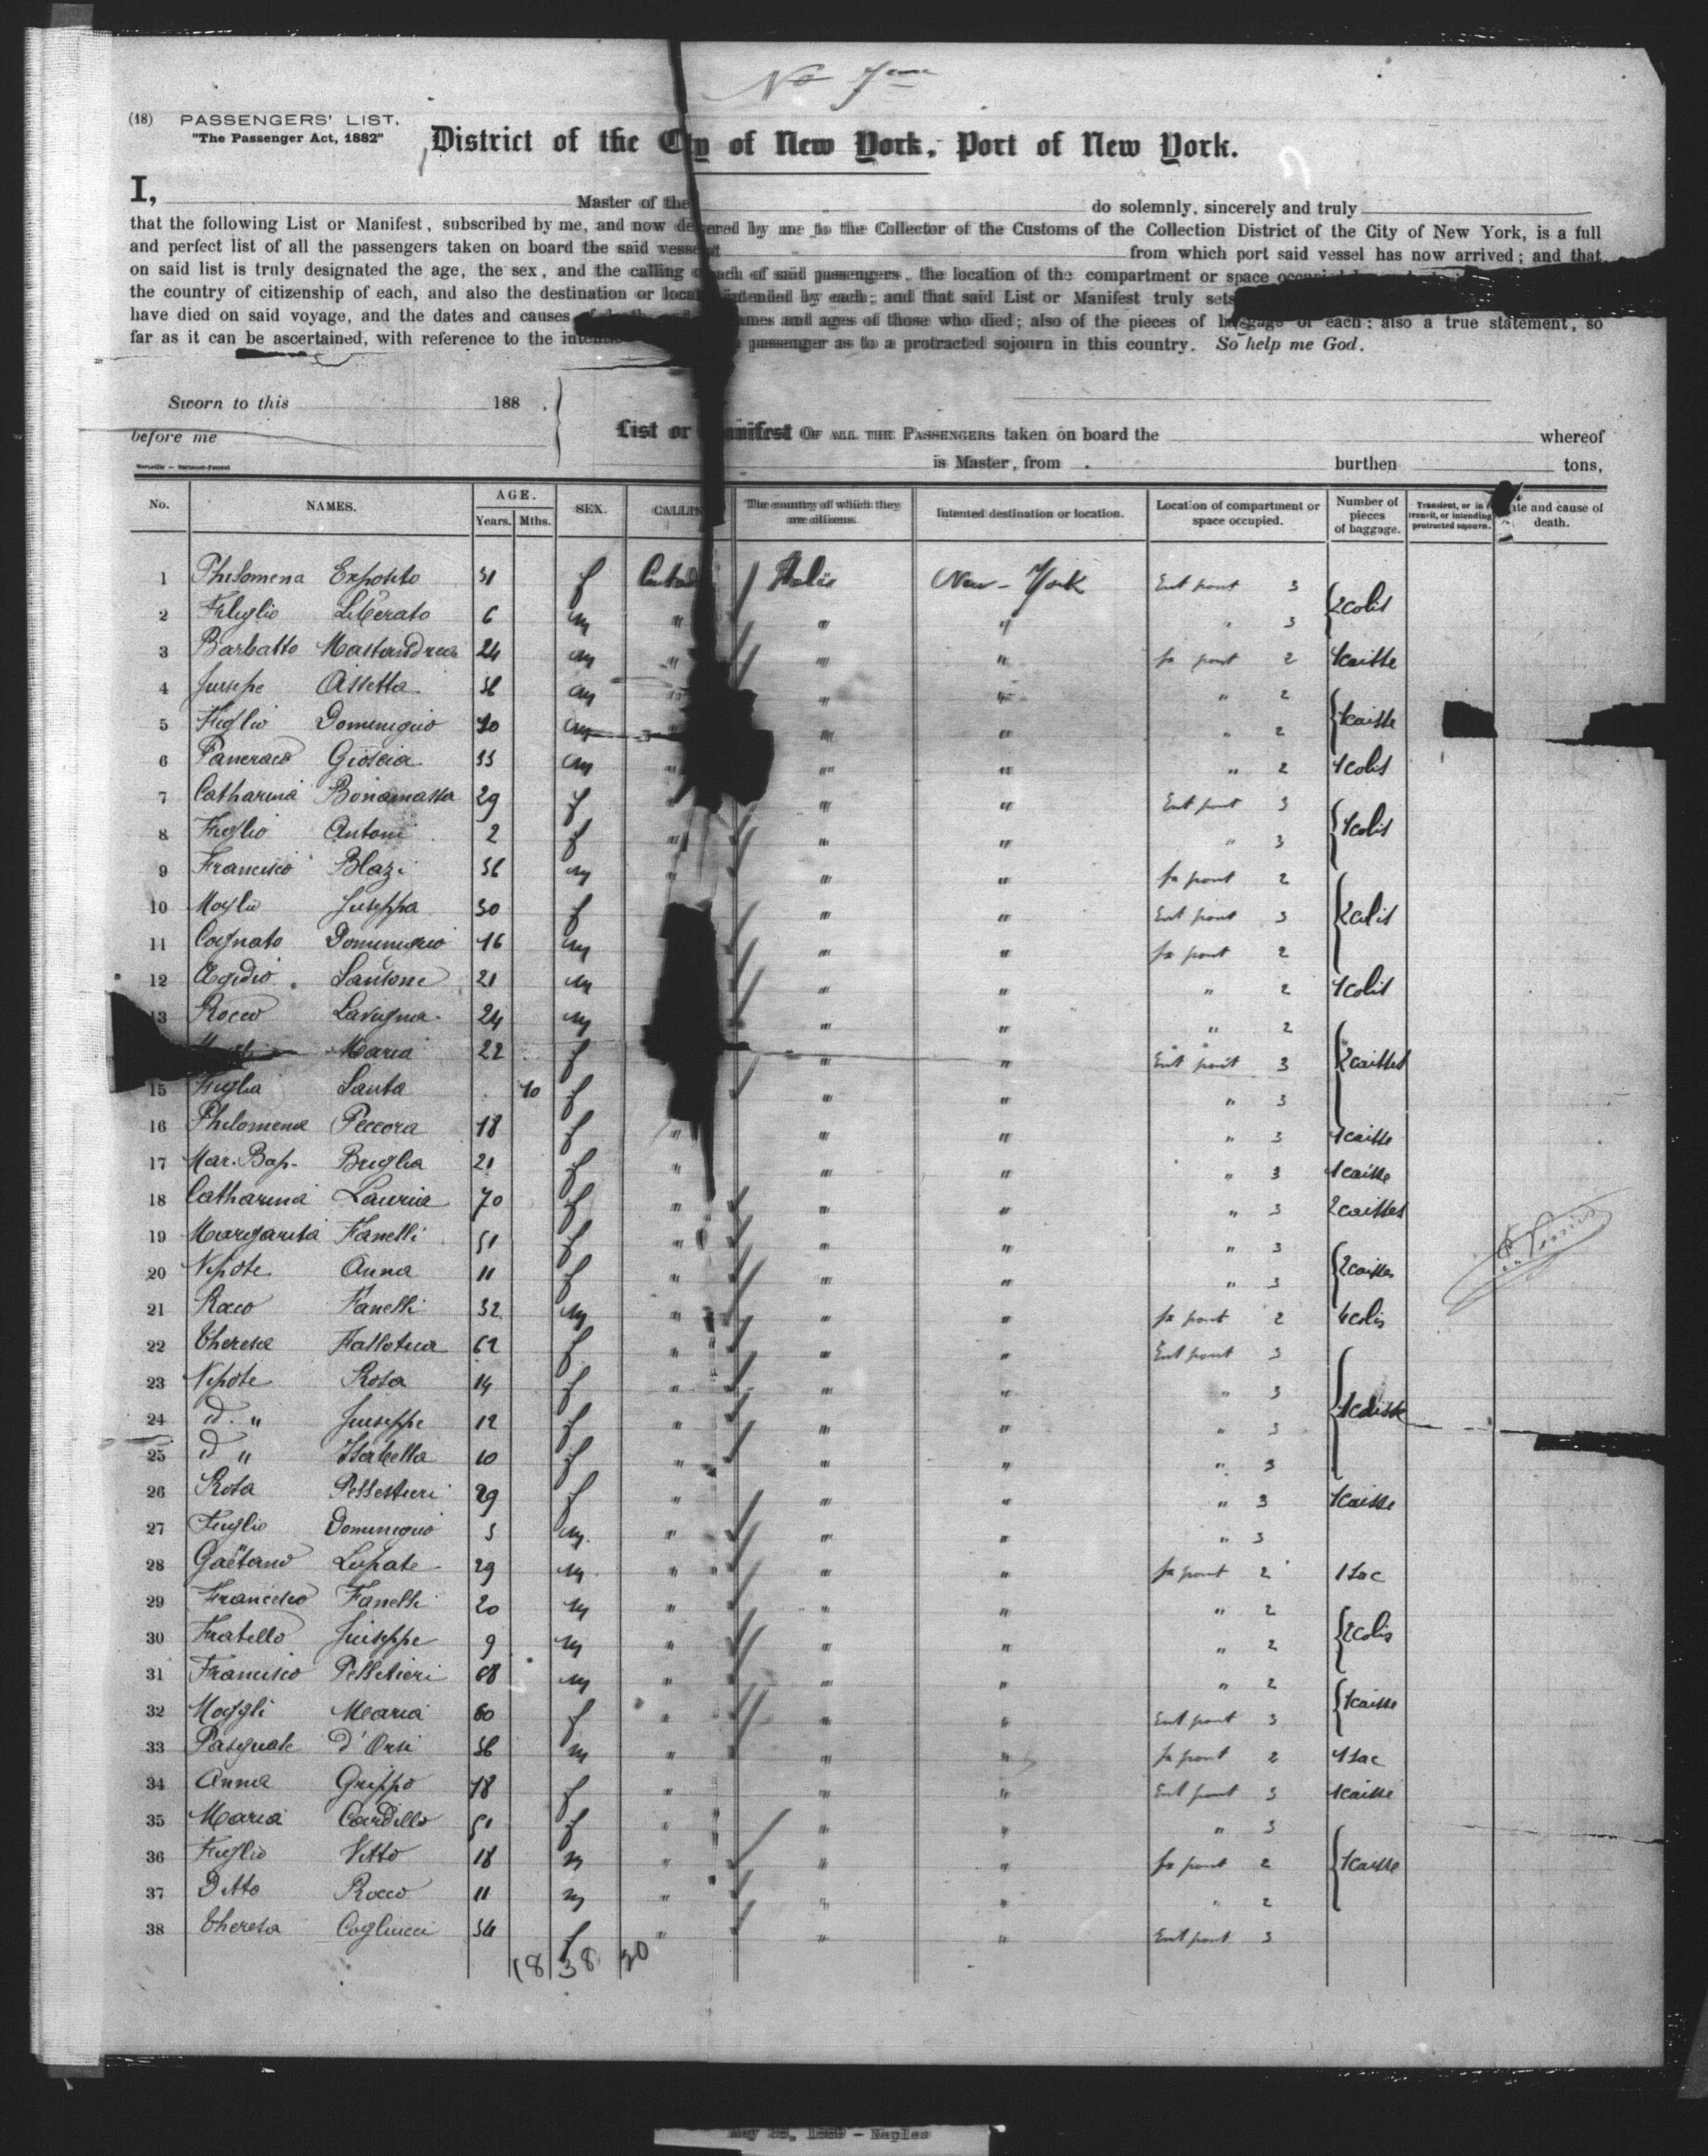 No 7eme
(18) PASSENGERS' LIST.
"The Passenger Act, 1882"
District of the City of New York, Port of New York.
I, Master of the do solemnly, sincerely and truly
that the following List or Manifest, subscribed by me, and now delivered by me to the Collector of the Customs of the Collection District of the City of New York, is a full
and perfect list of all the passengers taken on board the said vessel at from which port said vessel has now arrived; and that
on said list is truly designated the age, the sex, and the calling of each of said passengers, the location of the compartment or space
the country of citizenship of each, and also the destination or location intended by each; and that said List or Manifest truly sets
have died on said voyage, and the dates and causes names and ages of those who died; also of the pieces of baggage of each: also a true statement, so
far as it can be ascertained, with reference to the passenger as to a protracted sojourn in this country. So help me God.
Sworn to this 188 .
before me
List or Manifest OF ALL THE PASSENGERS taken on board the whereof
is Master, from burthen tons,
No. NAMES. AGE. Years. Mths. SEX. CALLING The country of which they are citizens. Intented destination or location. Location of compartment or space occupied. Number of pieces of baggage. Transient, or in transit, or intending protracted sojourn. Date and cause of death.
1 Philomena Exposito 31 f Italie New-York Ent pont 3
2 Figlio Liberato 6 m " " " " 3 2 colis
3 Barbatto Mastandrea 24 m " " " fx pont 2 1 caisse
4 Assetta 36 m " " " " 2
5 Figlio Domenique 10 m " " " 2 1 caisse
6 Gioscia 33 m " " " " 2 1 colis
7 Catharina Bonamassa 29 f " " Ent pont 3
8 Figlio Antoni 2 f " " " " 3 1 colis
9 Francisco Blazi 36 m " " " fx pont 2
10 Moglie Juseppa 30 f " " Ent pont 3 2 colis
11 Cognato Domenique 16 m " " fx pont 2
12 Egidio Santone 21 m " " " 2 1 colis
13 Rocco Lavugna 24 m " " " 2
Maria 22 f " " Ent pont 3 2 caisses
15 Figlia Santa 10 f " " " 3
16 Philomena Peccora 18 f " " " " 3 1 caisse
17 Mar. Bap. Briglia 21 f " " " " 3 1 caisse
18 Catharina Lauria 70 f " " " " 3 2 caisses
19 Margarita Fanelli 51 f " " " " 3
20 Nipote Anna 11 f " " " " 3 2 caisses
21 Roco Fanelli 32 m " " " fx pont 2 4 colis
22 Theresa 62 f " " " Ent pont 3
23 Nipote Rosa 14 f " " " " 3
24 d. " Juseppe 12 f " " " " 3
25 d " Isabella 10 f " " " " 3
26 Rosa Pellettieri 29 f " " " " 3 1 caisse
27 Figlio Domenique 3 m " " " " 3
28 Gaëtano Lupate 29 m " " " fx pont 2 1 sac
29 Francisco Fanelli 20 m " " " " 2
30 Fratello Juseppe 9 m " " " " 2 2 colis
31 Francisco Pelletieri 68 m " " " " 2
32 Moggli Maria 60 f " " " Ent pont 3 1 caisse
33 Pasquale d'Orsi 36 m " " " fx pont 2 1 sac
34 Anna Grippo 18 f " " " Ent pont 3 1 caisse
35 Maria Cardillo 51 f " " " " 3
36 Figlio Vitto 18 m " " " fx pont 2 1 caisse
37 Ditto Rocco 11 m " " " " 2
38 Theresa Cogliucci 34 f " " " Ent pont 3
18 38 20
- Naples